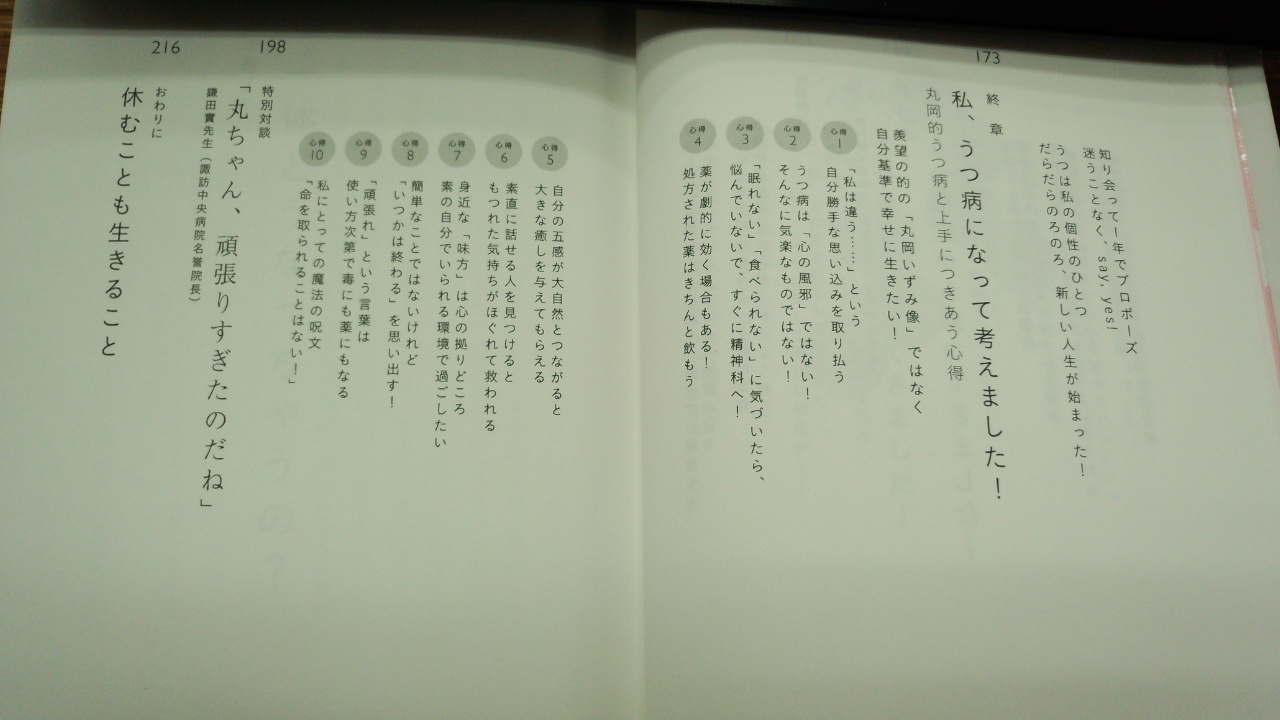 知り会って一年でプロポーズ
迷うことなく、say, yes!
うつは私の個性のひとつ
だらだらのろのろ、新しい人生が始まった！
173
終章
私、うつ病になって考えました！
丸岡的うつ病と上手につきあう心得
羨望の的の「丸岡いずみ像」ではなく
自分基準で幸せに生きたい！
心得
1
「私は違う……」という
自分勝手な思い込みを取り払う
心得
2
うつ病は「心の風邪」ではない！
そんなに気楽なものではない！
心得
3
「眠れない」「食べられない」に気づいたら、
悩んでいないで、すぐに精神科へ！
心得
4
薬が劇的に効く場合もある！
処方された薬はきちんと飲もう
心得
5
自分の五感が大自然とつながると
大きな癒しを与えてもらえる
心得
6
素直に話せる人を見つけると
もつれた気持ちがほぐれて救われる
心得
7
身近な「味方」は心の拠りどころ
素の自分でいられる環境で過ごしたい
心得
8
簡単なことではないけれど
「いつかは終わる」を思い出す！
心得
9
「頑張れ」という言葉は
使い方次第で毒にも薬にもなる
心得
10
私にとっての魔法の呪文
「命を取られることはない！」
198
特別対談
「丸ちゃん、頑張りすぎたのだね」
鎌田實先生（諏訪中央病院名誉院長）
216
おわりに
休むことも生きること